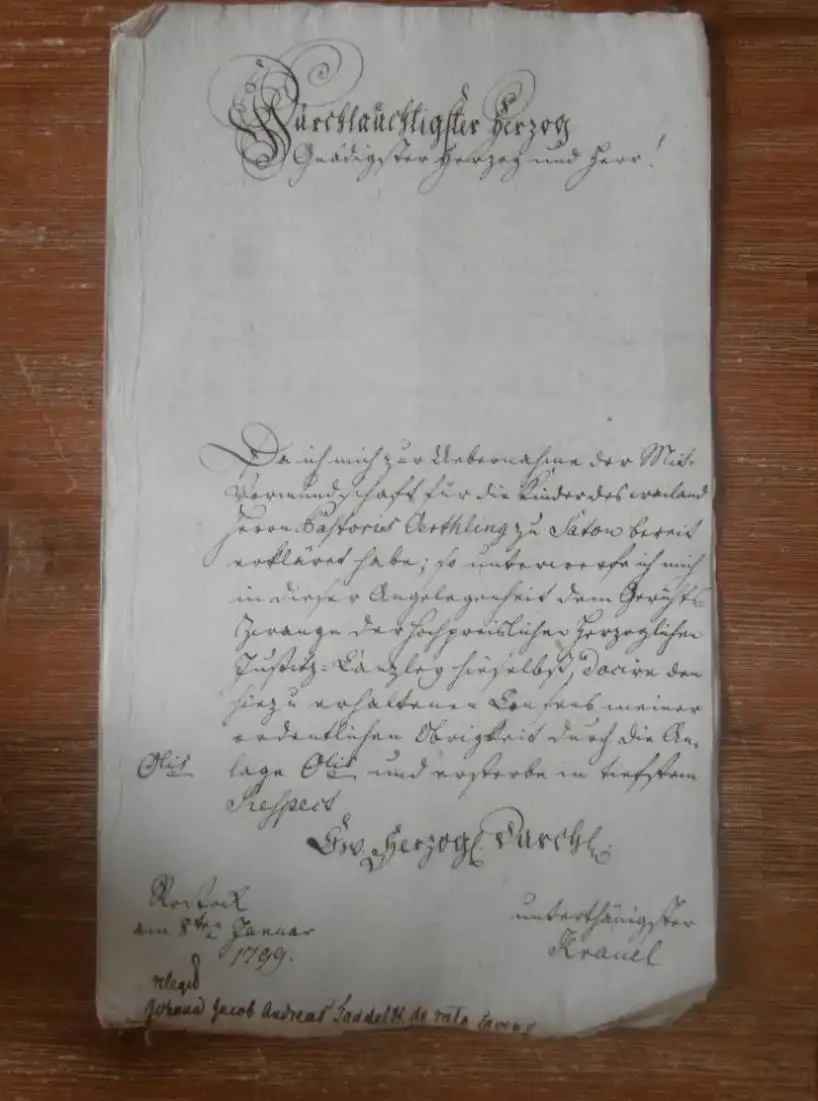 Durchlauchtigster Herzog
Gnädigster Herzog und Herr!
Da ich mich zur Uebernahme der Mit-
Vormundschaft für die Kinder des weiland
Herrn Pastoris Oerthling zu Satow bereit
erkläret habe; so unterwerfe ich mich
in dieser Angelegenheit dem Gerichts-
Zwange der Hochpreislichen Herzoglichen
Justitz-Canzley hieselbst, docire den
hiezu erhaltenen Consens meiner
ordentlichen Obrigkeit durch die An-
Olis lage Olis und ersterbe in tiefstem
Respect
Ew. Herzogl. Durchl.
Rostock
am 8ten Januar
1799.
unterthänigster
Krauel
relegi
Johann Jacob Andreas de rato